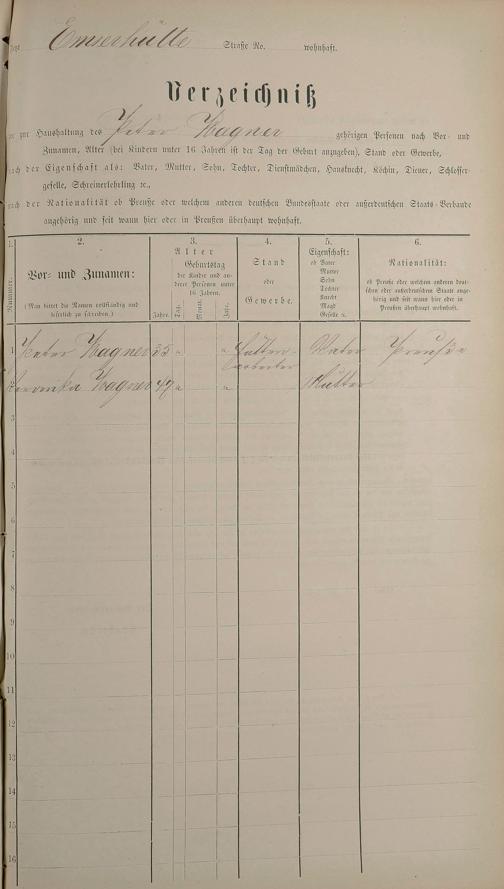 Emserhütte Straße No. wohnhaft.
Verzeichniß
zur Haushaltung des Peter Wagner gehörigen Personen nach Vor- und
Zunamen, Alter (bei Kindern unter 16 Jahren ist der Tag der Geburt anzugeben), Stand oder Gewerbe,
nach der Eigenschaft als: Vater, Mutter, Sohn, Tochter, Dienstmädchen, Hausknecht, Köchin, Diener, Schlosser-
geselle, Schreinerlehrling ꝛc.,
nach der Nationalität ob Preuße oder welchem anderen deutschen Bundesstaate oder außerdeutschen Staats-Verbande
angehörig und seit wann hier oder in Preußen überhaupt wohnhaft.
1.
Nummer.
2.
Vor- und Zunamen:
(Man bittet die Namen vollständig und
leserlich zu schreiben.)
3.
Alter
Geburtstag
der Kinder und an-
derer Personen unter
16 Jahren.
Jahre.
Tag.
Monat.
Jahr.
4.
Stand
oder
Gewerbe.
5.
Eigenschaft:
ob Vater
Mutter
Sohn
Tochter
Knecht
Magd
Geselle ꝛc.
6.
Nationalität:
ob Preuße oder welchem anderen deut-
schen oder außerdeutschen Staate ange-
hörig und seit wann hier oder in
Preußen überhaupt wohnhaft.
1 Peter Wagner 55 " " Hütten- Vater Preuße
arbeiter
2 Veronika Wagner 47 " " Mutter
3
4
5
6
7
8
9
10
11
12
13
14
15
16